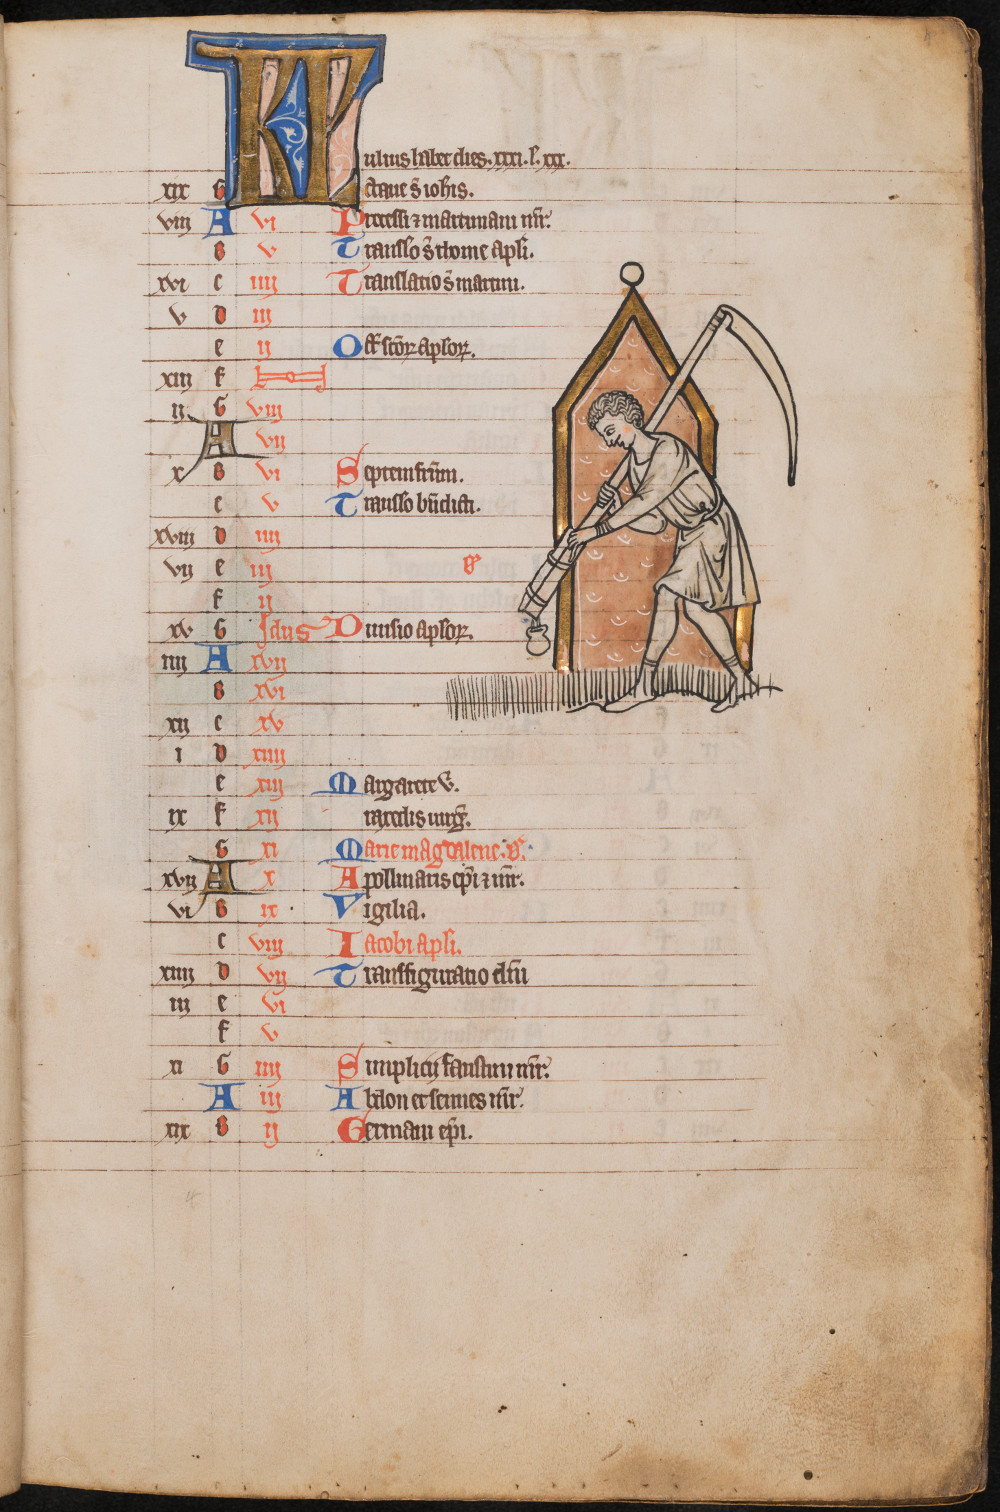 KL
ulius habet dies .xxxi. l. xxx.
xix G ctaue s̄ ioh̄is.
viij A vi Processi ⁊ martiniani mr̄.
B v Transl̄o s̄ thome apl̄i.
xvi c iiij Translatio s̄ martini.
v D iij
e ij Oct̄ sc̄oꝝ apl̄oꝝ.
xiij f N
ij G viij
A vij
x B vi Septem fr̄um.
c v Transl̄o bn̄dicti.
xviij D iiij
vij e iij
f ij
xv G Idus Diuisio apl̄oꝝ.
iiij A xvij
B xvi
xij c xv
i D xiiij
e xiij Margarete v̄.
ix f xij raxedis uirḡ.
G xi Marie magdalene.
xvij A x Apollinaris ep̄i ⁊ mr̄.
vi B ix Vigilia.
c viij Iacobi apl̄i.
xiiij D vij Transfiguratio dn̄i
iij e vi
f v
xi G iiij Simplicij faustini mr̄.
A iij Abdon et sennes mr̄.
xix B ij Germani ep̄i.